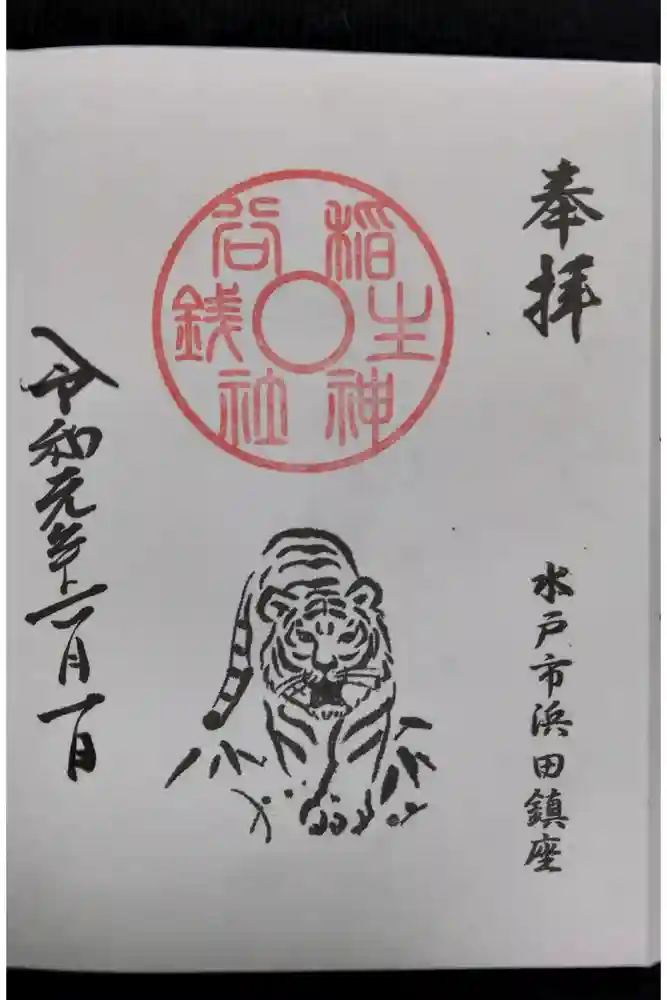 奉拝
水戸市浜田鎮座
銭谷稲生神社
令和元年 月一日